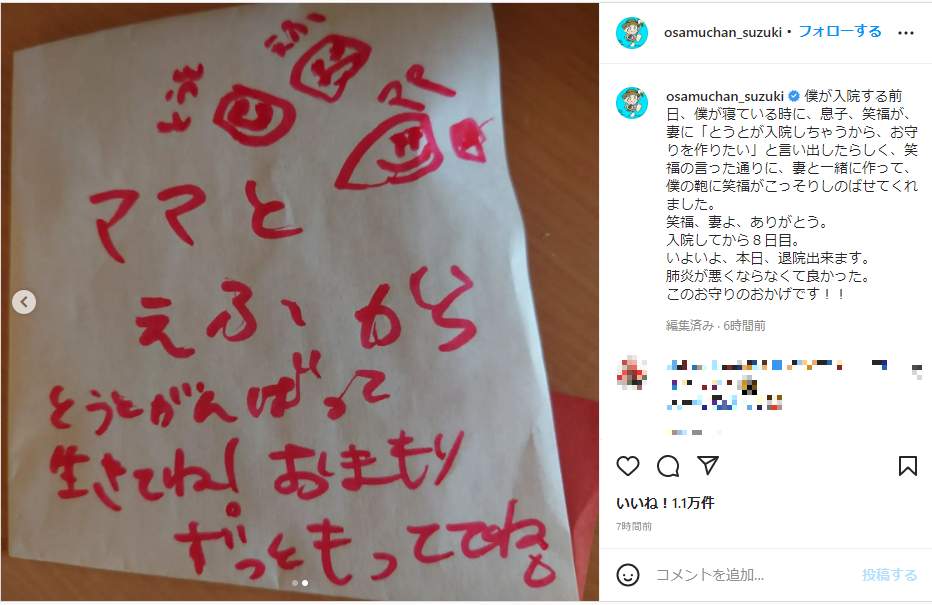 えふ
とうと
ママ
ママと
えふから
とうとがんばって
生きてね!おまもり
ずっともっててね。
osamuchan_suzuki・フォローする
osamuchan_suzuki 僕が入院する前
日、僕が寝ている時に、息子、笑福が、
妻に「とうとが入院しちゃうから、お守
りを作りたい」と言い出したらしく、笑
福の言った通りに、妻と一緒に作って、
僕の鞄に笑福がこっそりしのばせてくれ
ました。
笑福、妻よ、ありがとう。
入院してから8日目。
いよいよ、本日、退院出来ます。
肺炎が悪くならなくて良かった。
このお守りのおかげです!!
編集済み・6時間前
いいね!1.1万件
7時間前
コメントを追加...
投稿する